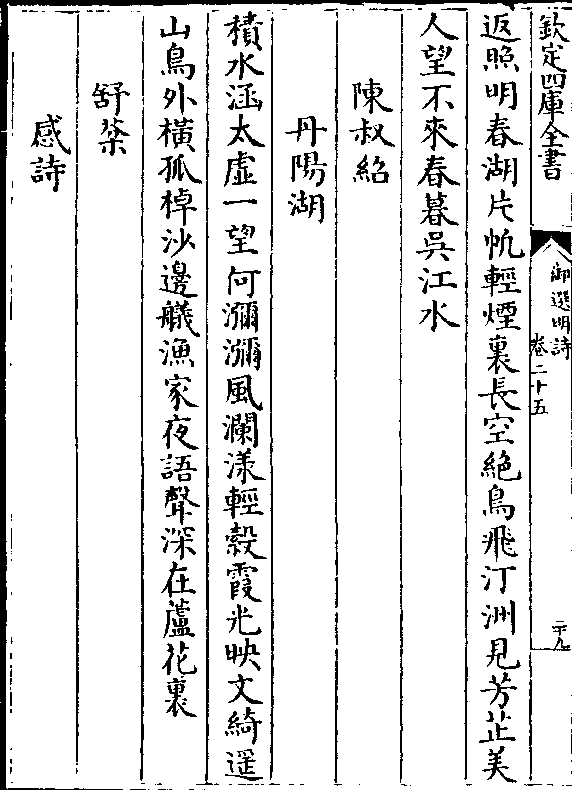 欽定四庫全書
御選明詩
卷二十五
二十九
返照明春湖片帆輕煙裏長空絶鳥飛汀洲見芳芷美
人望不來春暮吳江水
陳叔紹
丹陽湖
積水涵太虛一望何瀰瀰風瀾漾輕縠霞光映文綺遥
山鳥外橫孤棹沙邊艤漁家夜語聲深在蘆花裏
舒棻
感詩